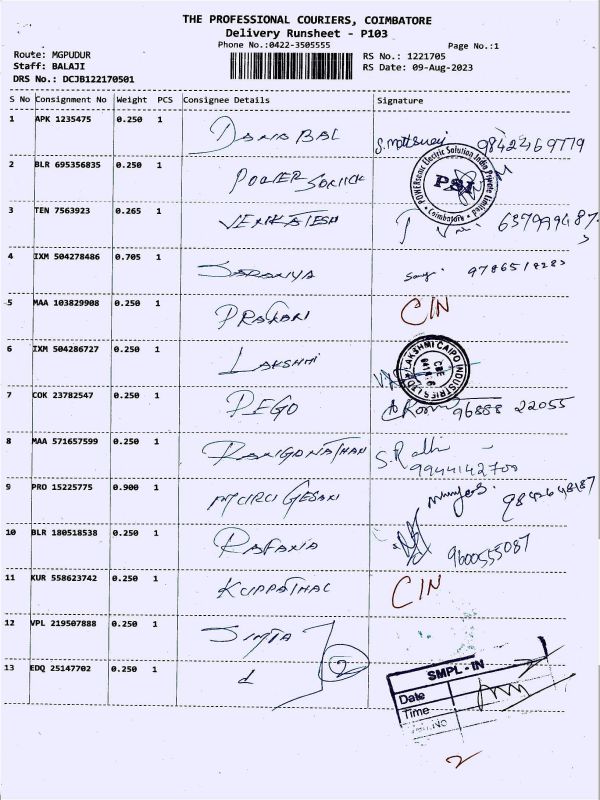 THE PROFESSIONAL COURIERS, COIMBATORE
Delivery Runsheet - P103
Phone No.:0422-3505555
Page No.:1
Route: MGPUDUR
RS No.: 1221705
Staff: BALAJI
RS Date: 09-Aug-2023
DRS No.: DCJB122170501
S No Consignment No Weight PCS Consignee Details Signature
1 APK 1235475 0.250 1 9842469779
2 BLR 695356835 0.250 1 POWER
POWERsonic Electric Solution India Private Limited
PSI
* Coimbatore *
3 TEN 7563923 0.265 1 VENKATESH
4 IXM 504278486 0.705 1 SARANIYA
5 MAA 103829908 0.250 1 PRAKASH CIN
6 IXM 504286727 0.250 1 LAKSHMI
LAKSHMI CAIPO INDUSTRIES LTD
CBE
7 COK 23782547 0.250 1 PEGO 96888 22055
8 MAA 571657599 0.250 1 RANGONATHAN S. Radhi
9944142700
9 PRO 15225775 0.900 1 MURUGESAN
10 BLR 180518538 0.250 1 9600555087
11 KUR 558623742 0.250 1 KUPPATHAL CIN
12 VPL 219507888 0.250 1 2
13 EDQ 25147702 0.250 1 d
SMPL - IN
Date
Time
2